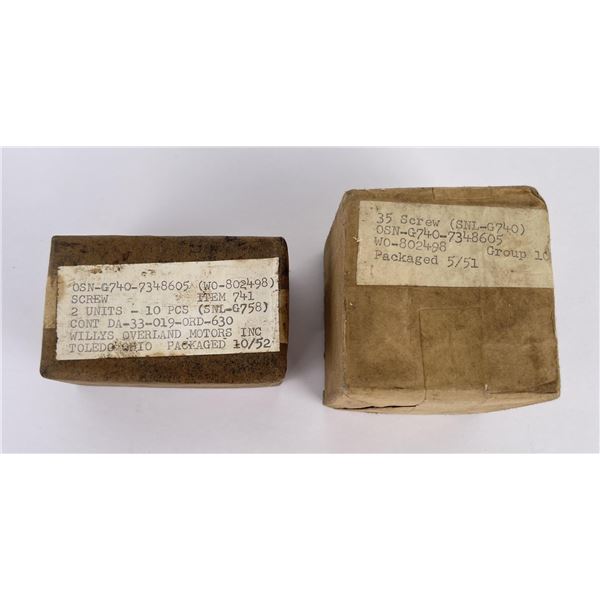 OSN-G740-7348605 (WO-802498)
SCREW ITEM 741
2 UNITS - 10 PCS (SNL-G758)
CONT DA-33-019-ORD-630
WILLYS OVERLAND MOTORS INC
TOLEDO OHIO PACKAGED 10/52
35 Screw (SNL-G740)
OSN-G740-7348605
WO-802498 Group 10
Packaged 5/51